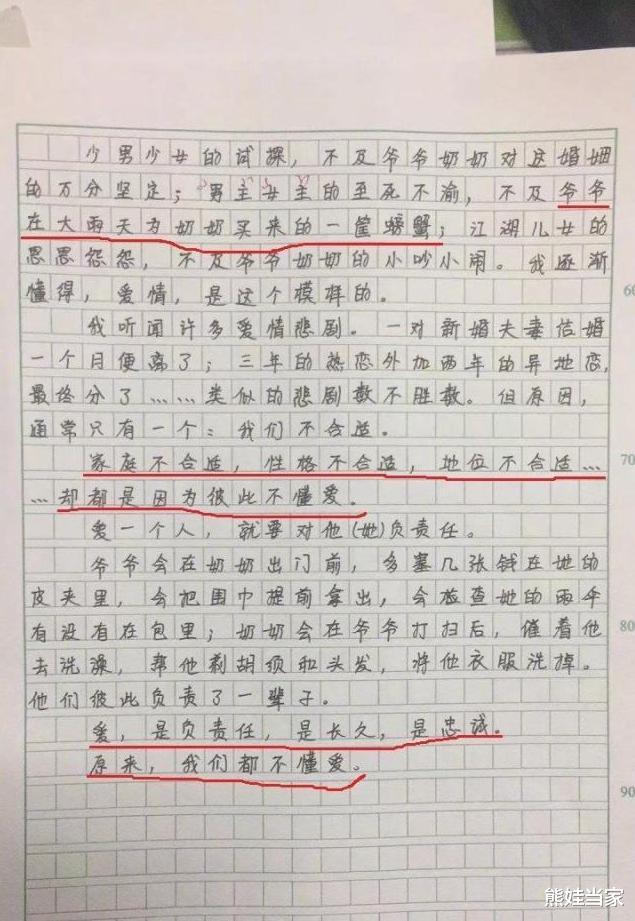 少男少女的试探，不及爷爷奶奶对这婚姻
的万分坚定；男主女主的至死不渝，不及爷爷
在大雨天为奶奶买来的一筐螃蟹；江湖儿女的
恩恩怨怨，不及爷爷奶奶的小吵小闹。我逐渐
懂得，爱情，是这个模样的。
我听闻许多爱情悲剧。一对新婚夫妻结婚
一个月便离了；三年的热恋外加两年的异地恋，
最终分了……类似的悲剧数不胜数。但原因，
通常只有一个：我们不合适。
家庭不合适，性格不合适，地位不合适…
…却都是因为彼此不懂爱。
爱一个人，就要对他(她)负责任。
爷爷会在奶奶出门前，多塞几张钱在她的
皮夹里，会把围巾提前拿出，会检查她的雨伞
有没有在包里；奶奶会在爷爷打扫后，催着他
去洗澡，帮他剃胡须和头发，将他衣服洗掉。
他们彼此负责了一辈子。
爱，是负责任，是长久，是忠诚。
原来，我们都不懂爱。
60
70
80
90
熊娃当家